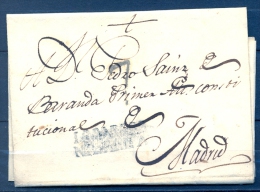 A D. Pedro Sainz de
Baranda Primer Alc. consti
tucional de
Madrid